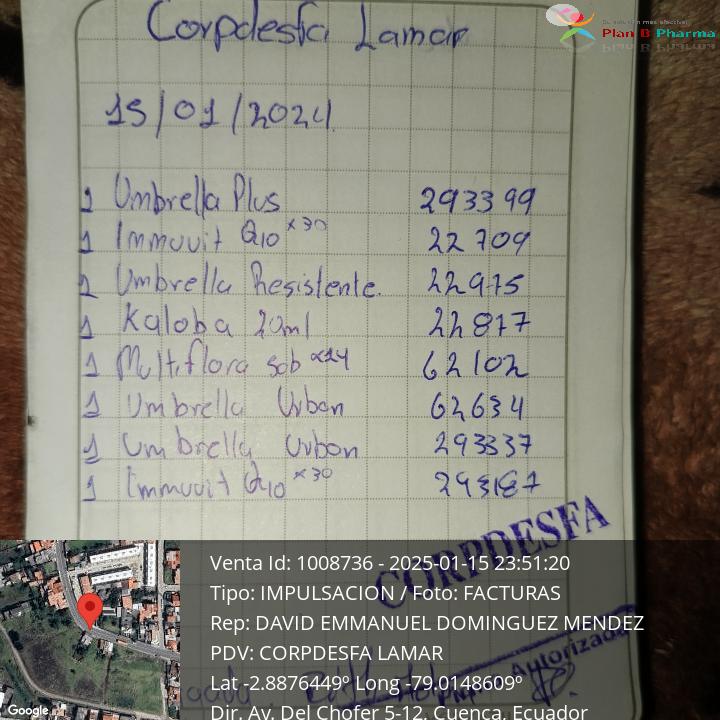 Corpdesfa Lamar
Su solución más efectiva!
Plan B Pharma
15/01/2024
1 Umbrella Plus 293399
1 Immuvit Q10 x30 22709
1 Umbrella Resistente. 22975
1 Kaloba 20ml 22877
1 Multiflora sob x14 62102
1 Umbrella Urban 62634
1 Umbrella Urban 293337
1 Immuvit Q10 x30 293187
CORPDESFA
Venta Id: 1008736 - 2025-01-15 23:51:20
Tipo: IMPULSACION / Foto: FACTURAS
Rep: DAVID EMMANUEL DOMINGUEZ MENDEZ
PDV: CORPDESFA LAMAR
Autorizada
Lat -2.8876449º Long -79.0148609º
Dir. Av. Del Chofer 5-12, Cuenca, Ecuador
Google